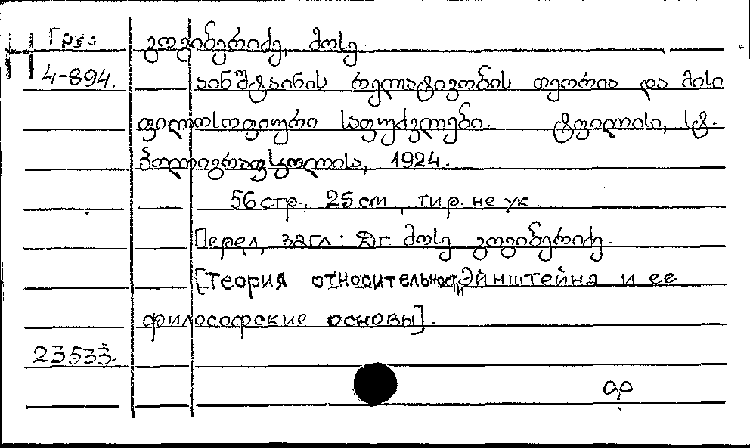 Груз
4-894.
გოგიბერიძე, მოსე.
აინშტაინის რელატივობის თეორია და მისი
ფილოსოფიური საფუძვლები. ტფილისი, სტ.
პოლიგრაფსკოლისა, 1924.
56 стр. 25 cm, тир. не ук.
Перед загл: Dr. მოსე გოგიბერიძე.
[Теория относительности Эйнштейна и ее
философские основы].
23533.